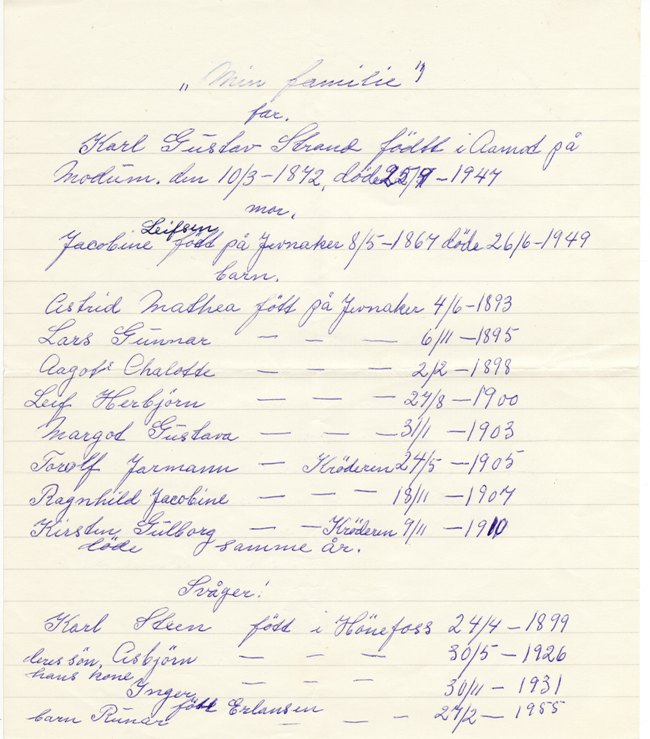 „Min familie"
far.
Karl Gustav Strand född i Aamot på
Modum. den 10/3-1872, døde 25/9-1947
mor.
Leifsen
Jacobine född på Jevnaker 8/5-1867 døde 26/6-1949
barn.
Astrid Mathea fött på Jevnaker 4/6-1893
Lars Gunnar — — — 6/11-1895
Aagot Chalotte — — — 2/2-1898
Leif Herbjörn — — — 27/8-1900
Margot Gustava — — — 31/1-1903
Torolf Jarmann — Kröderen 24/5-1905
Ragnhild Jacobine — — — 18/11-1907
Kirsten Gulborg — — Kröderen 9/11-1910
döde samme år.
Svåger!
Karl Steen fött i Hönefoss 24/4-1899
deres sön, Asbjörn — — — 30/5-1926
hans kone,
Inger — — — 30/11-1931
fött Erlansen
barn Runar — — — 27/2-1955